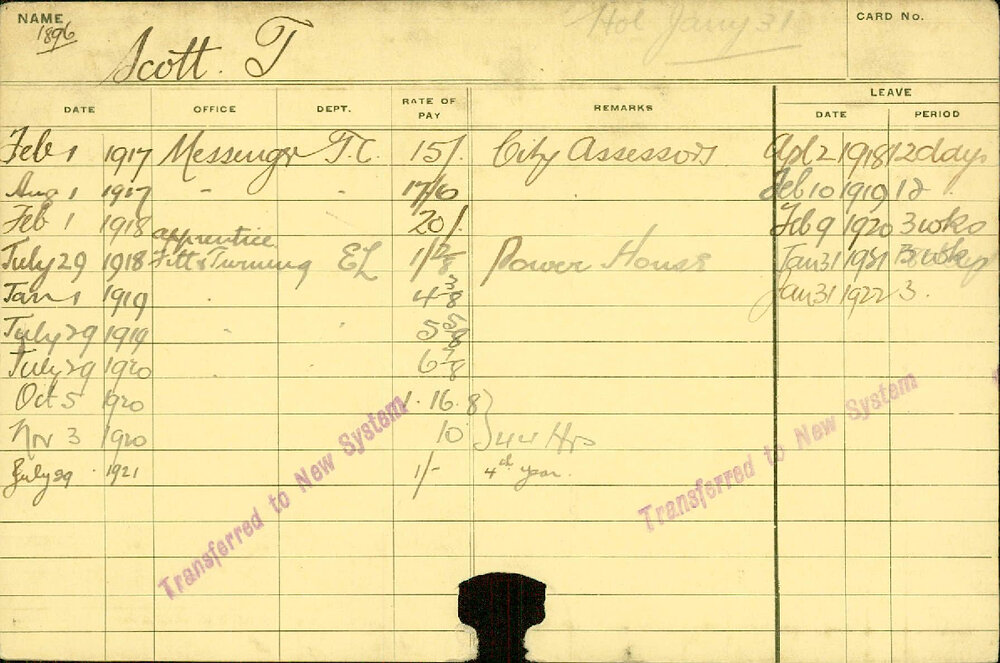 NAME
1896
Scott. T
Hol Jany 31
CARD No.
DATE OFFICE DEPT. RATE OF PAY REMARKS LEAVE
DATE PERIOD
Feb 1 1917 Messenger T.C. 15/. City Assessors Apl 2 1918 12 days
Aug 1 1917 " " 17/6 Feb 10 1919 12 "
Feb 1 1918 20/. Feb 9 1920 3 wks
apprentice
July 29 1918 Fitt & Turning EL Power House Jan 31 1921 3 wks
Jan 1 1919 " 4 3/8 Jan 31 1922 3.
July 29 1919 " " 5 5/8
July 29 1920 6 7/8
Oct 5 1920 1. 16. 8
Nov 3 1920 10 Hrs
July 29 1921 1/- 4th year.
Transferred to New System
Transferred to New System